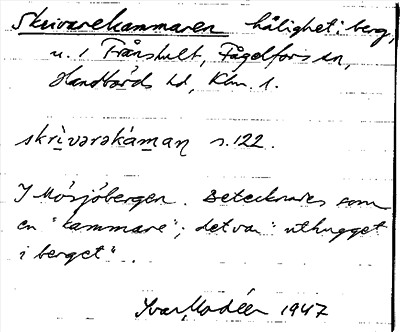 Skrivarekammaren hålighet i berg,
u. 1 Trånshult, Fågelfors sn,
Handbörds hd, Klm. l.
skrìvarəkàman s. 122.
I Mösjöbergen. Betecknades som
en "kammare"; det var "uthugget
i berget".
Ivar Modéer 1947